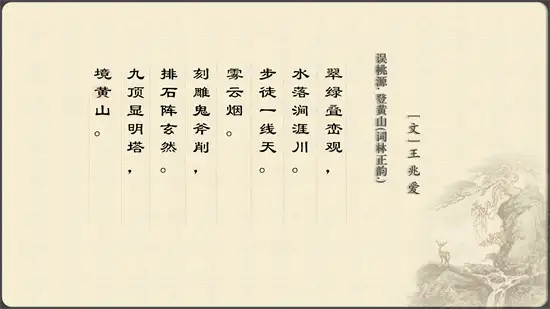 误桃源·登黄山(词林正韵)
[文]王兆爱
翠绿叠峦观，
水落涧涯川。
步徒一线天。
雾云烟。
刻雕鬼斧削，
排石阵玄然。
九顶显明塔，
境黄山。